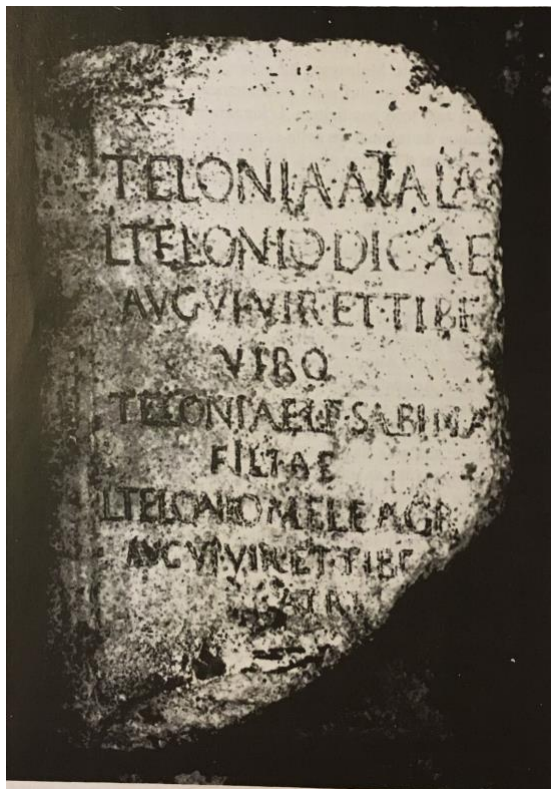 TELONIA·ATALA
L·TELONIO·DICAE
AVG·VI·VIR·ET·TIBE
VIRO
TELONIAE·L·F·SABINA
FILIAE
L·TELONIO·MELEAGR
AVG·VI·VIR·ET·TIBE